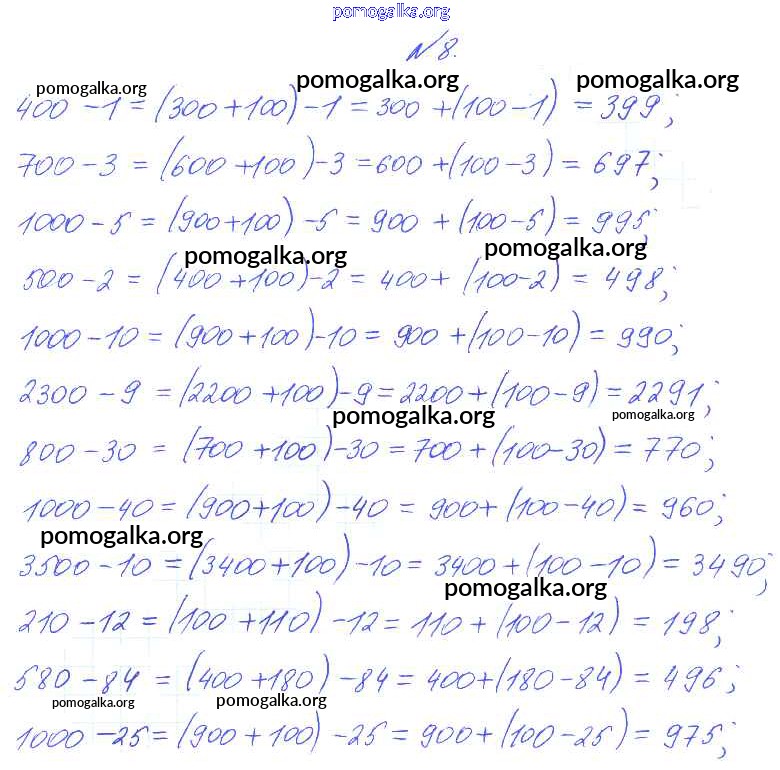 pomogalka.org
№8.
pomogalka.org pomogalka.org pomogalka.org
400 - 1 = (300 + 100) - 1 = 300 + (100 - 1) = 399;
700 - 3 = (600 + 100) - 3 = 600 + (100 - 3) = 697;
1000 - 5 = (900 + 100) - 5 = 900 + (100 - 5) = 995;
pomogalka.org pomogalka.org
500 - 2 = (400 + 100) - 2 = 400 + (100 - 2) = 498;
1000 - 10 = (900 + 100) - 10 = 900 + (100 - 10) = 990;
2300 - 9 = (2200 + 100) - 9 = 2200 + (100 - 9) = 2291;
pomogalka.org pomogalka.org
800 - 30 = (700 + 100) - 30 = 700 + (100 - 30) = 770;
1000 - 40 = (900 + 100) - 40 = 900 + (100 - 40) = 960;
pomogalka.org
3500 - 10 = (3400 + 100) - 10 = 3400 + (100 - 10) = 3490;
pomogalka.org
210 - 12 = (100 + 110) - 12 = 110 + (100 - 12) = 198;
580 - 84 = (400 + 180) - 84 = 400 + (180 - 84) = 496;
pomogalka.org pomogalka.org
1000 - 25 = (900 + 100) - 25 = 900 + (100 - 25) = 975;